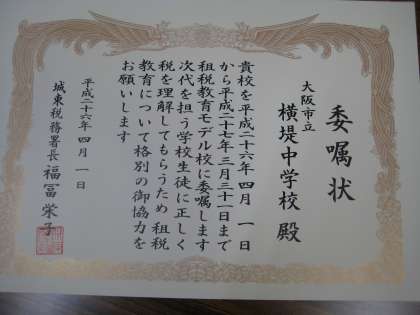 委嘱状
大阪市立
横堤中学校 殿
貴校を平成二十六年 四月 一日
から平成二十七年 三月三十一日まで
租税教育モデル校に委嘱します
次代を担う学校生徒に正しく
税を理解してもらうため 租税
教育について格別の御協力を
お願いします
平成二十六年 四月 一日
城東税務署長 福冨 栄子